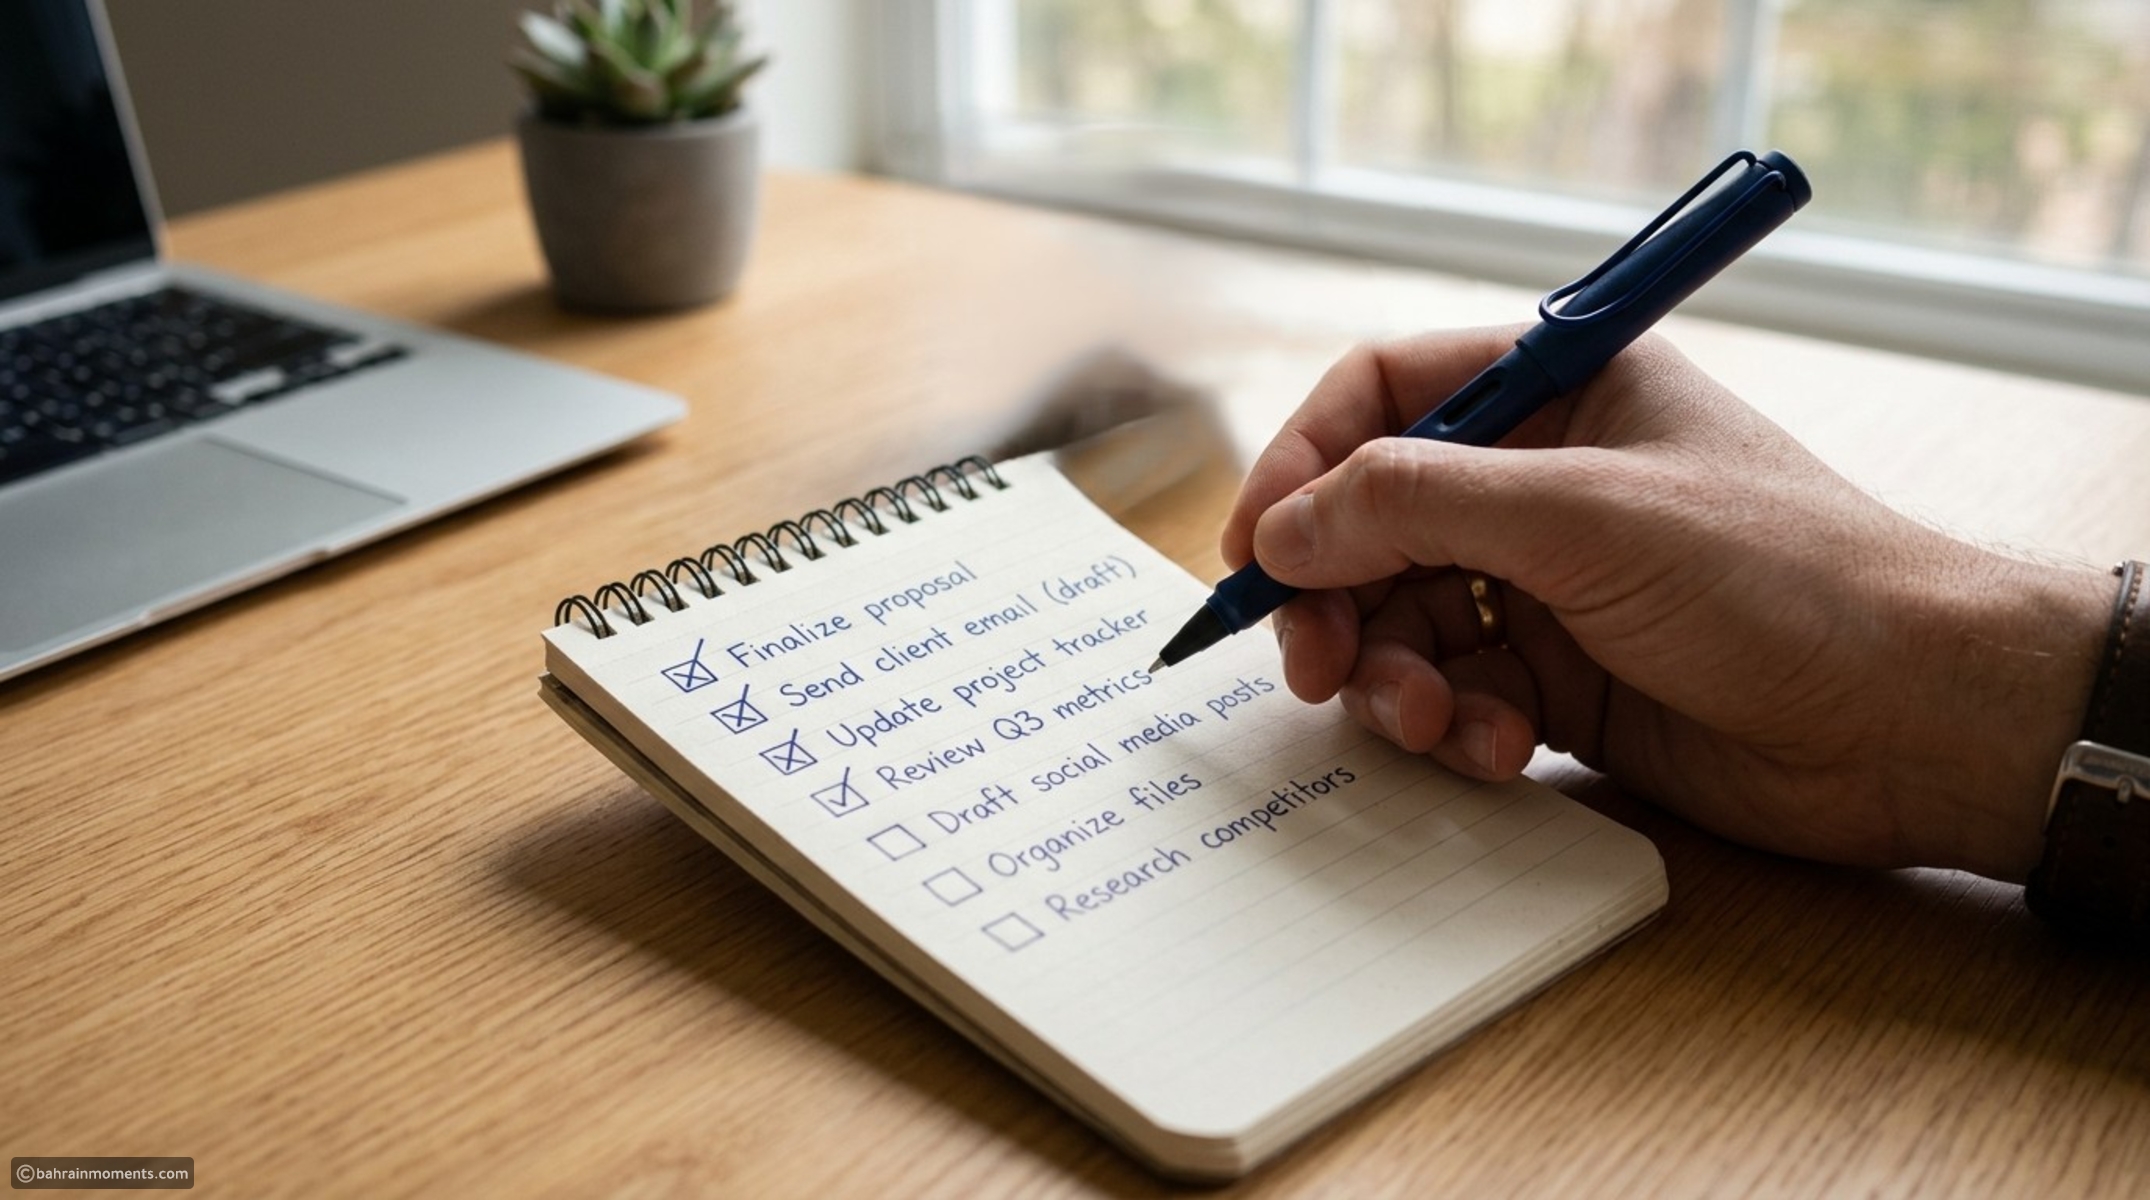 Finalize proposal
Send client email (draft)
Update project tracker
Review Q3 metrics
Draft social media posts
Organize files
Research competitors
©bahrainmoments.com